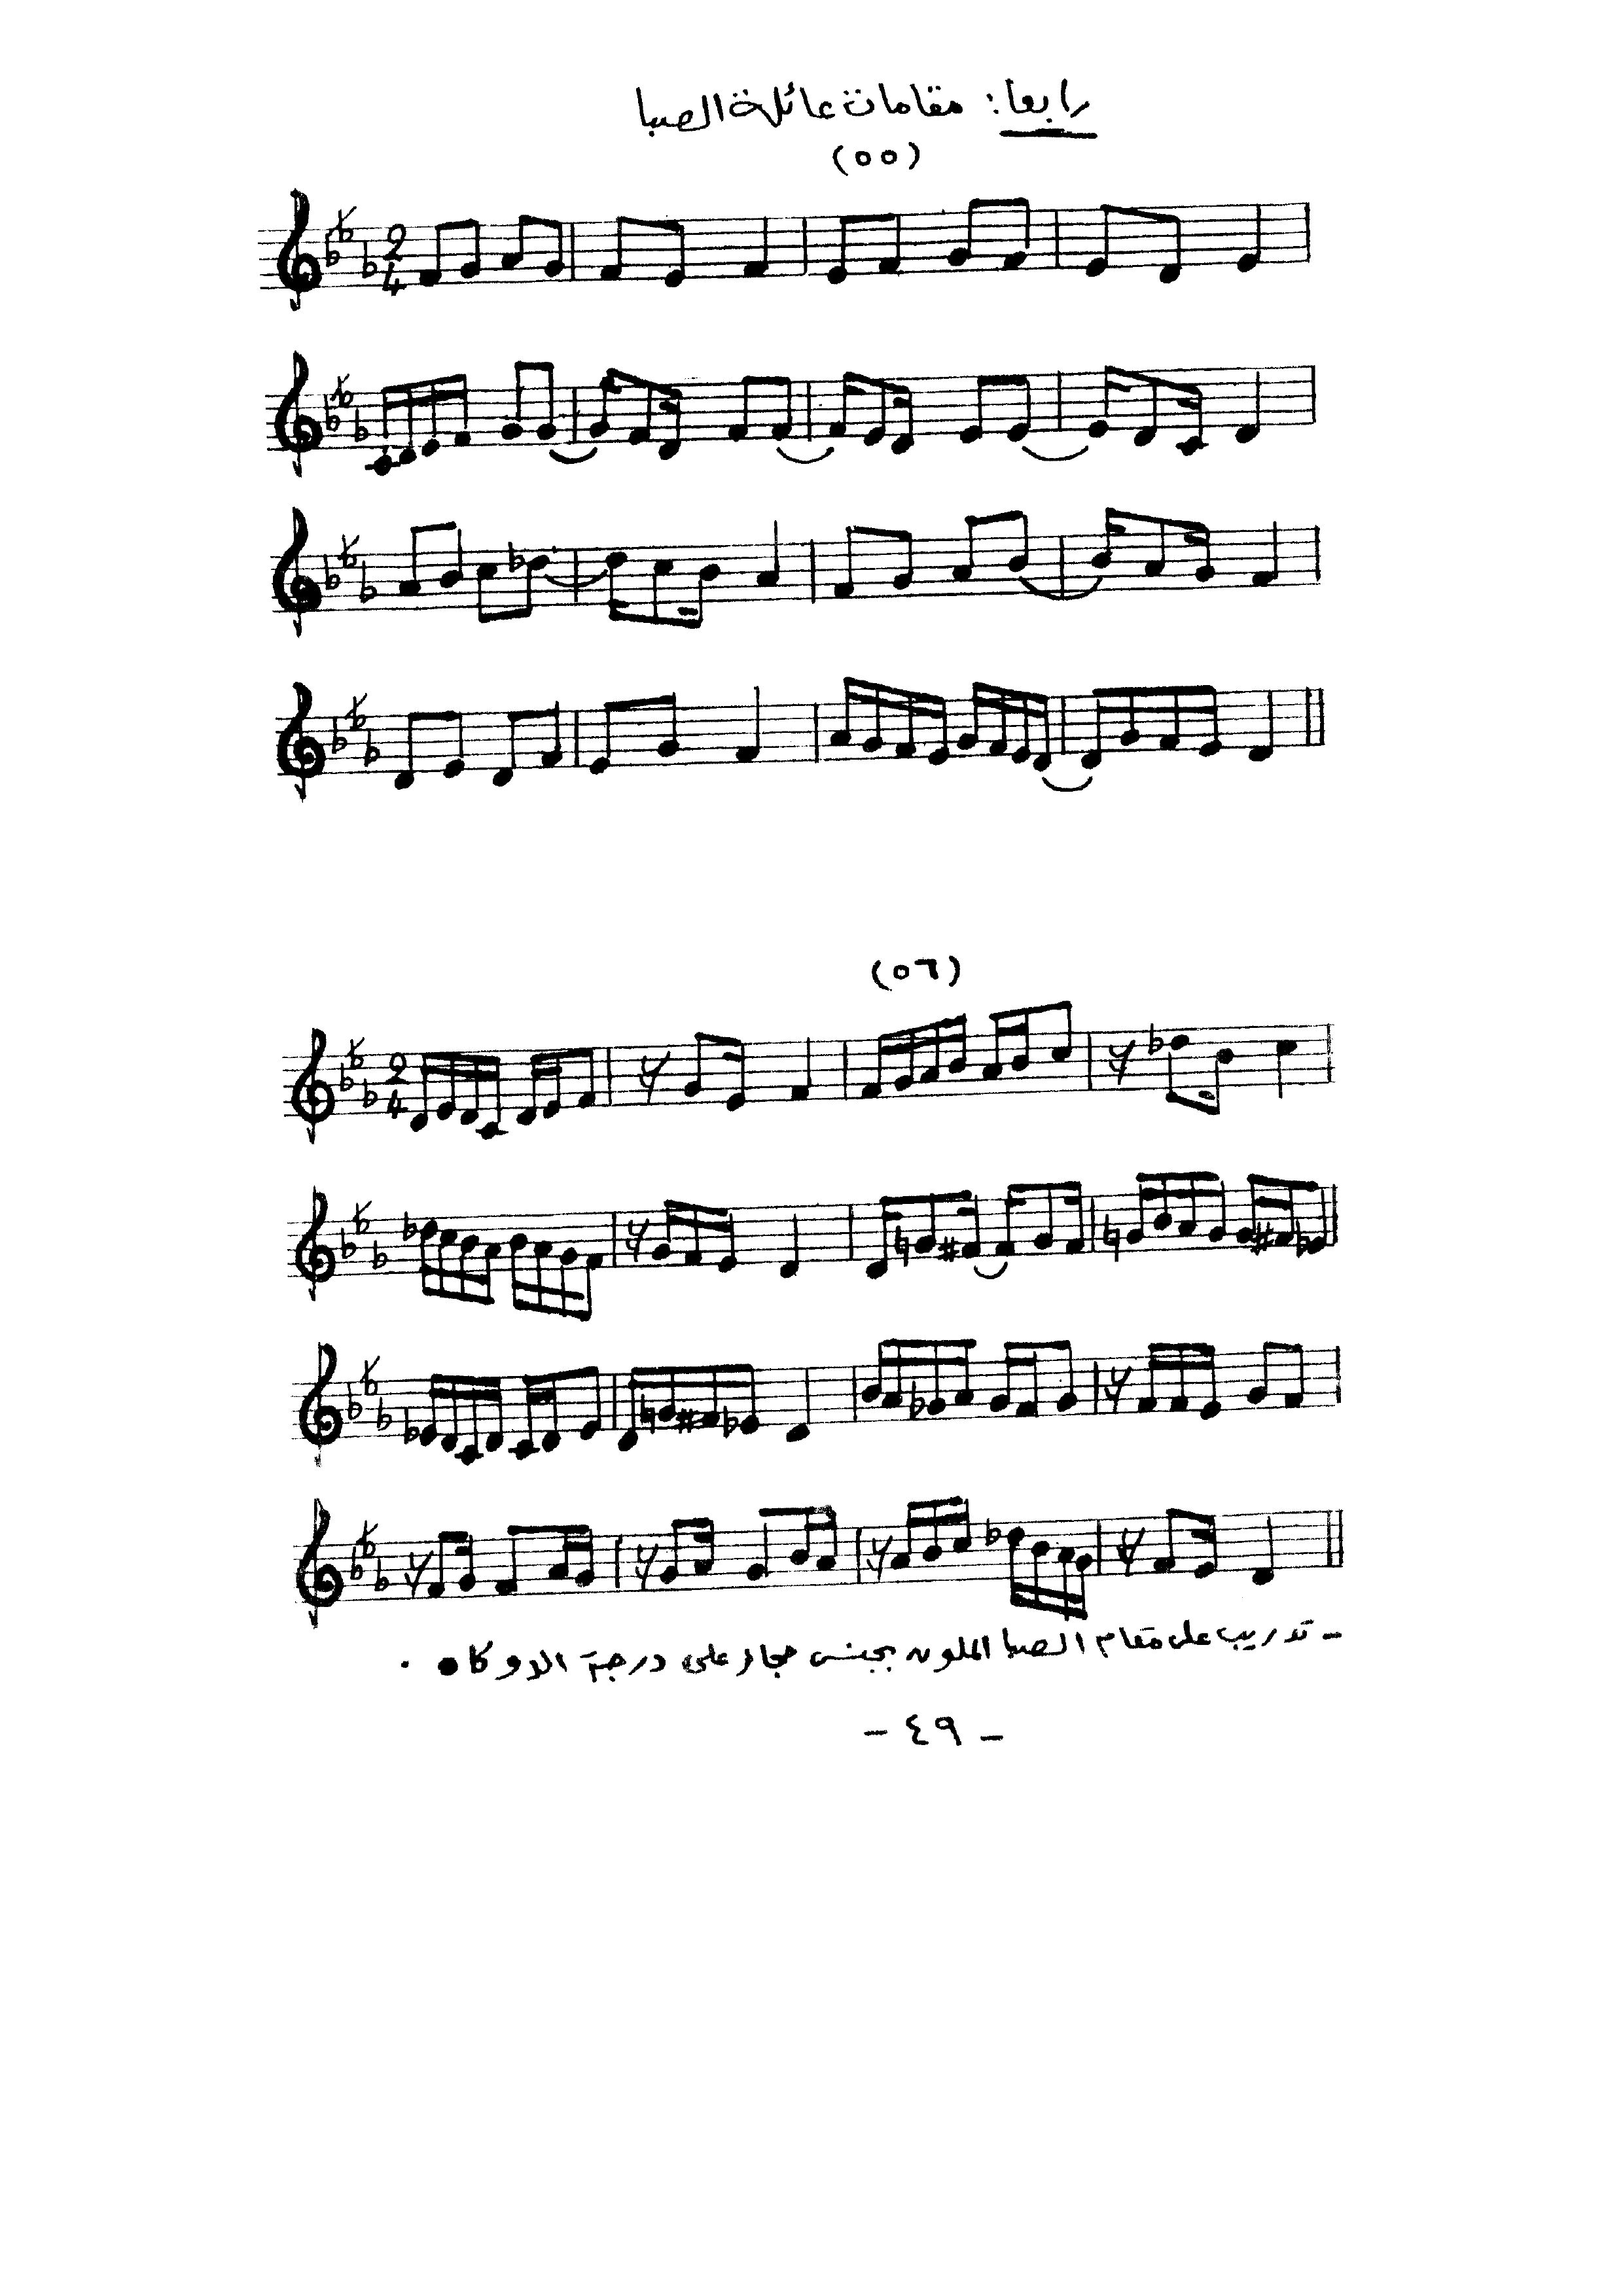 رابعا: مقامات عائلة الصبا
(٥٥)
2
4
(٥٦)
2
4
- تدريب على مقام الصبا الملون بجنس حجاز على درجة الدوكا .
- ٤٩ -